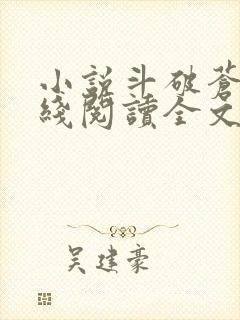 小說斗破蒼
綫閱讀全文
吴建豪